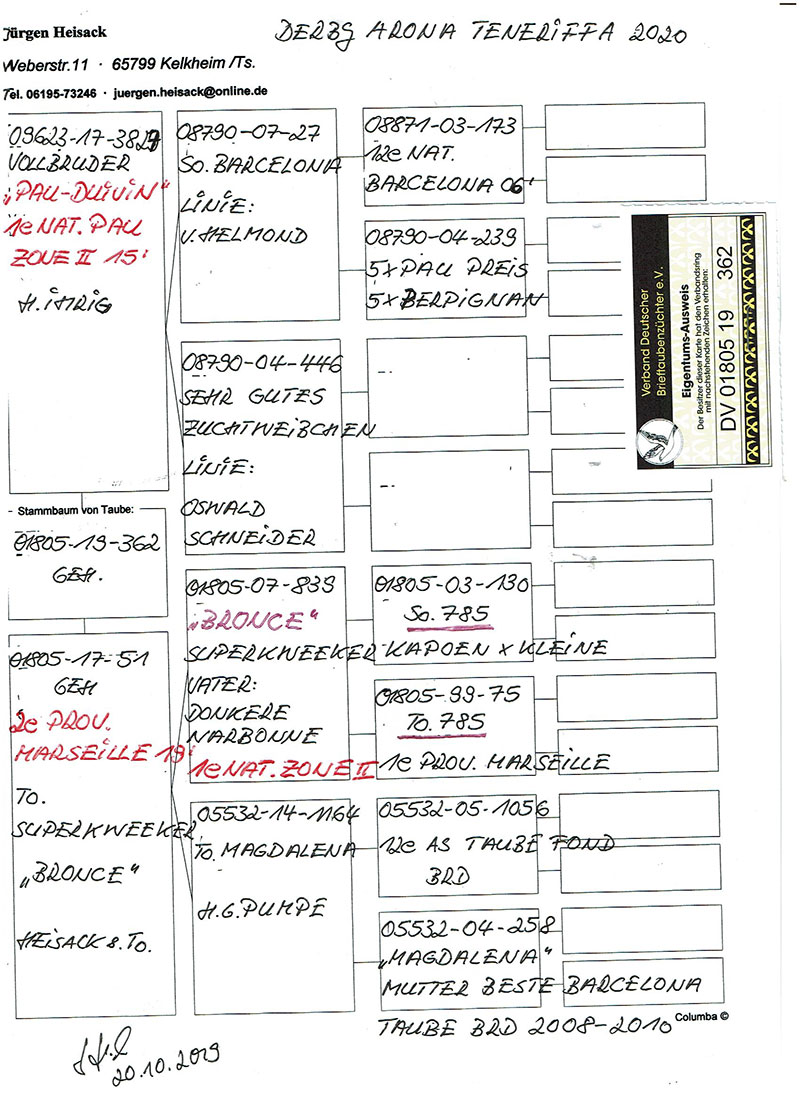 Jürgen Heisack
Weberstr.11 · 65799 Kelkheim /Ts.
Tel. 06195-73246 · juergen.heisack@online.de
DERBY ARONA TENERIFFA 2020
09623-17-3827
VOLLBRUDER
„PAU-DUIVIN“
1e NAT. PAU
ZONE II 15'
H. IHRIG
Stammbaum von Taube:
01805-19-362
GEH.
01805-17-51
GEH
2e PROV.
MARSEILLE 19'
TO.
SUPERKWEEKER
„BRONCE“
HEISACK & TO.
08790-07-27
SO. BARCELONIA
LINIE:
V. HELMOND
08790-04-446
SEHR GUTES
ZUCHTWEIBCHEN
LINIE:
OSWALD
SCHNEIDER
01805-07-839
„BRONCE“
SUPERKWEEKER
VATER:
DONKERE
NARBONNE
1e NAT. ZONE II
05532-14-1164
TO. MAGDALENA
H.G. PUMPE
08871-03-173
12e NAT.
BARCELONA 06'
08790-04-239
5x PAU PREIS
5x BERPIGNAN
--
--
01805-03-130
So. 785
KAPOEN x KLEINE
01805-99-75
To. 785
1e PROV. MARSEILLE
05532-05-1056
12e AS TAUBE FOND
BRD
05532-04-258
„MAGDALENA“
MUTTER BESTE BARCELONA
TAUBE BRD 2008-2010
Columba ©
20.10.2019
Verband Deutscher
Brieftaubenzüchter e.V.
Eigentums-Ausweis
Der Besitzer dieser Karte hat den Verbandsring
mit nachstehenden Zeichen erhalten:
DV 01805 19 362